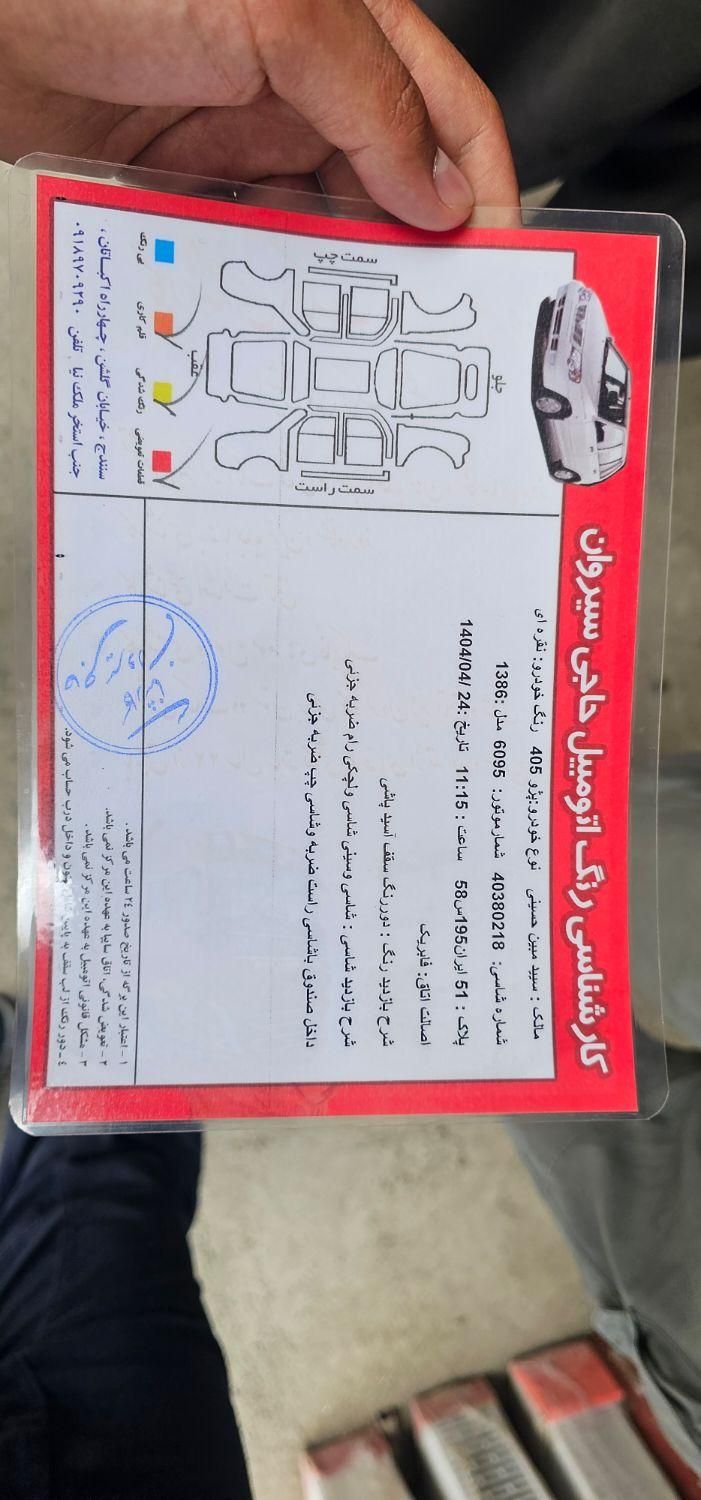 کارشناسی رنگ اتومبیل حاجی سیروان
مالک : سیید مبین حسینی نوع خودرو:پژو 405 رنگ خودرو: نقره ای
شماره شاسی: 40380218 شمارموتور: 6095 مدل :1386
پلاک : 51 ایران195س58 ساعت : 11:15 تاریخ :24 /1404/04
اصالت اتاق: فابریک
شرح بازدید رنگ : دوررنگ سقف آسید پاشی
شرح بازدید شاسی : شاسی وسینی شاسی ولچکی رام ضربه جزئی
داخل صندوق باشاسی راست ضربه وشاسی چپ ضربه جزئی
۱ - اعتبار این برگه از تاریخ صدور ۲٤ ساعت می باشد.
۲ - تعویض شدگی اتاق سایپا به عهده این مرکز نمی باشد.
۳ - مشکل قانونی اتومبیل به عهده این مرکز نمی باشد.
٤ - دور رنگ از لب سقف به پایین ستون و داخل درب حساب می شود.
سمت چپ
جلو
عقب
سمت راست
بی رنگ
قلم کاری
رنگ شدگی
قطعات تعویضی
سنندج ، خیابان گلشن ، چهارراه اکباتان ،
جنب استخر ملک نیا تلفن ۰۹۱۸۹۷۰۹۲۹۰